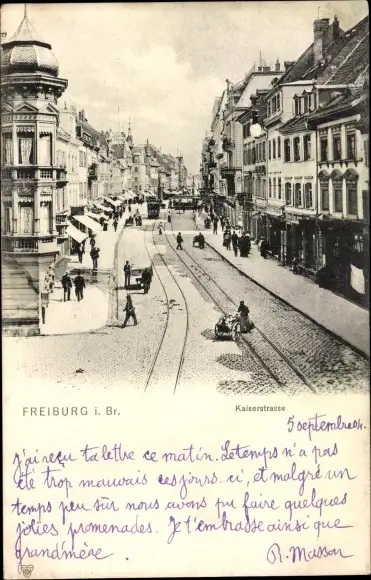 FREIBURG i. Br.
Kaiserstrasse
5 septembre 04.
j'ai reçu ta lettre ce matin. Le temps n'a pas
été trop mauvais ces jours-ci, et malgré un
temps peu sûr nous avons pu faire quelques
jolies promenades. Je t'embrasse ainsi que
grand'mère.
R. Masson